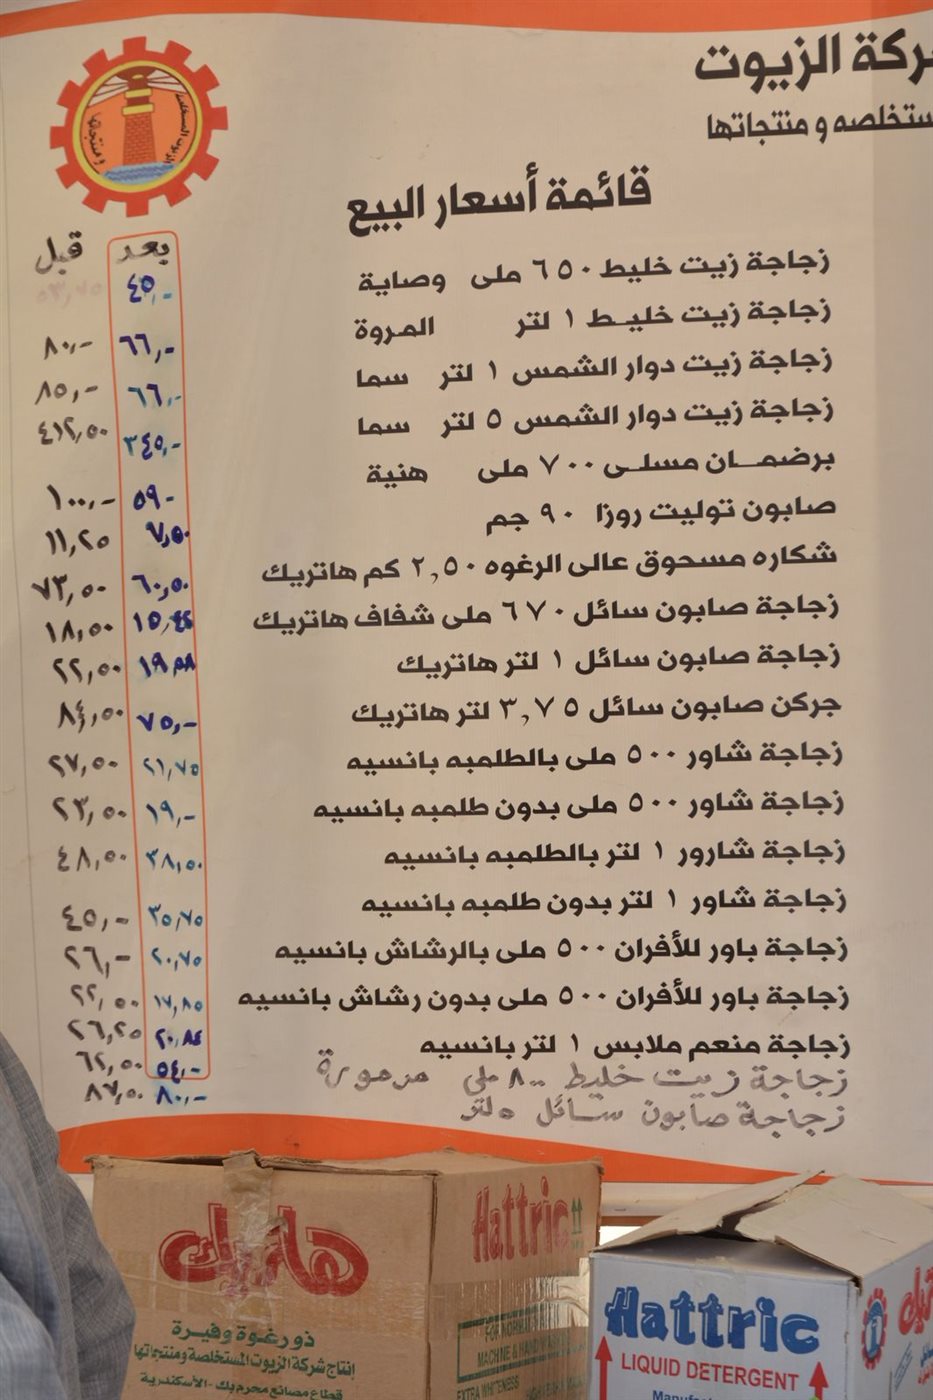 ركة الزيوت
ستخلصه و منتجاتها
الزيوت المستخلصة
و منتجاتها
قائمة أسعار البيع
بعد قبل
زجاجة زيت خليط ٦٥٠ ملى وصاية ٤٥,- ٥٣,٧٥
زجاجة زيت خليط ١ لتر المروة ٦٦,- ٨٠,-
زجاجة زيت دوار الشمس ١ لتر سما ٦٦,- ٨٥,-
زجاجة زيت دوار الشمس ٥ لتر سما ٣٤٥,- ٤١٢,٥٠
برضمان مسلى ٧٠٠ ملى هنية ٥٩- ١٠٠,-
صابون توليت روزا ٩٠ جم ٧,٥٠ ١١,٢٥
شكاره مسحوق عالى الرغوه ٢,٥٠ كم هاتريك ٦٠,٥٠ ٧٣,٥٠
زجاجة صابون سائل ٦٧٠ ملى شفاف هاتريك ١٨,٥٠
زجاجة صابون سائل ١ لتر هاتريك ٢٢,٥٠
جركن صابون سائل ٣,٧٥ لتر هاتريك ٧٥,- ٨٤,٥٠
زجاجة شاور ٥٠٠ ملى بالطلمبه بانسيه ٢١,٧٥ ٢٧,٥٠
زجاجة شاور ٥٠٠ ملى بدون طلمبه بانسيه ١٩,- ٢٣,٥٠
زجاجة شارور ١ لتر بالطلمبه بانسيه ٣٨,٥٠ ٤٨,٥٠
زجاجة شاور ١ لتر بدون طلمبه بانسيه ٣٥,٧٥ ٤٥,-
زجاجة باور للأفران ٥٠٠ ملى بالرشاش بانسيه ٢٠,٧٥ ٢٦,-
زجاجة باور للأفران ٥٠٠ ملى بدون رشاش بانسيه ١٧,٨٥ ٢٢,٥٠
زجاجة منعم ملابس ١ لتر بانسيه ٢٠,٨٤ ٢٦,٢٥
زجاجة زيت خليط ٨٠٠ ملي ٥٤,- ٦٢,٥٠
زجاجة صابون سائل ٥ لتر ٨٠,- ٨٧,٥٠
هاتريك
ذو رغوة وفيرة
إنتاج شركة الزيوت المستخلصة ومنتجاتها
قطاع مصانع محرم بك - الأسكندرية
Hattric
FOR NORMAL
MACHINE & HAND WA
EXTRA WHITENESS
Hattric
LIQUID DETERGENT
Manufac